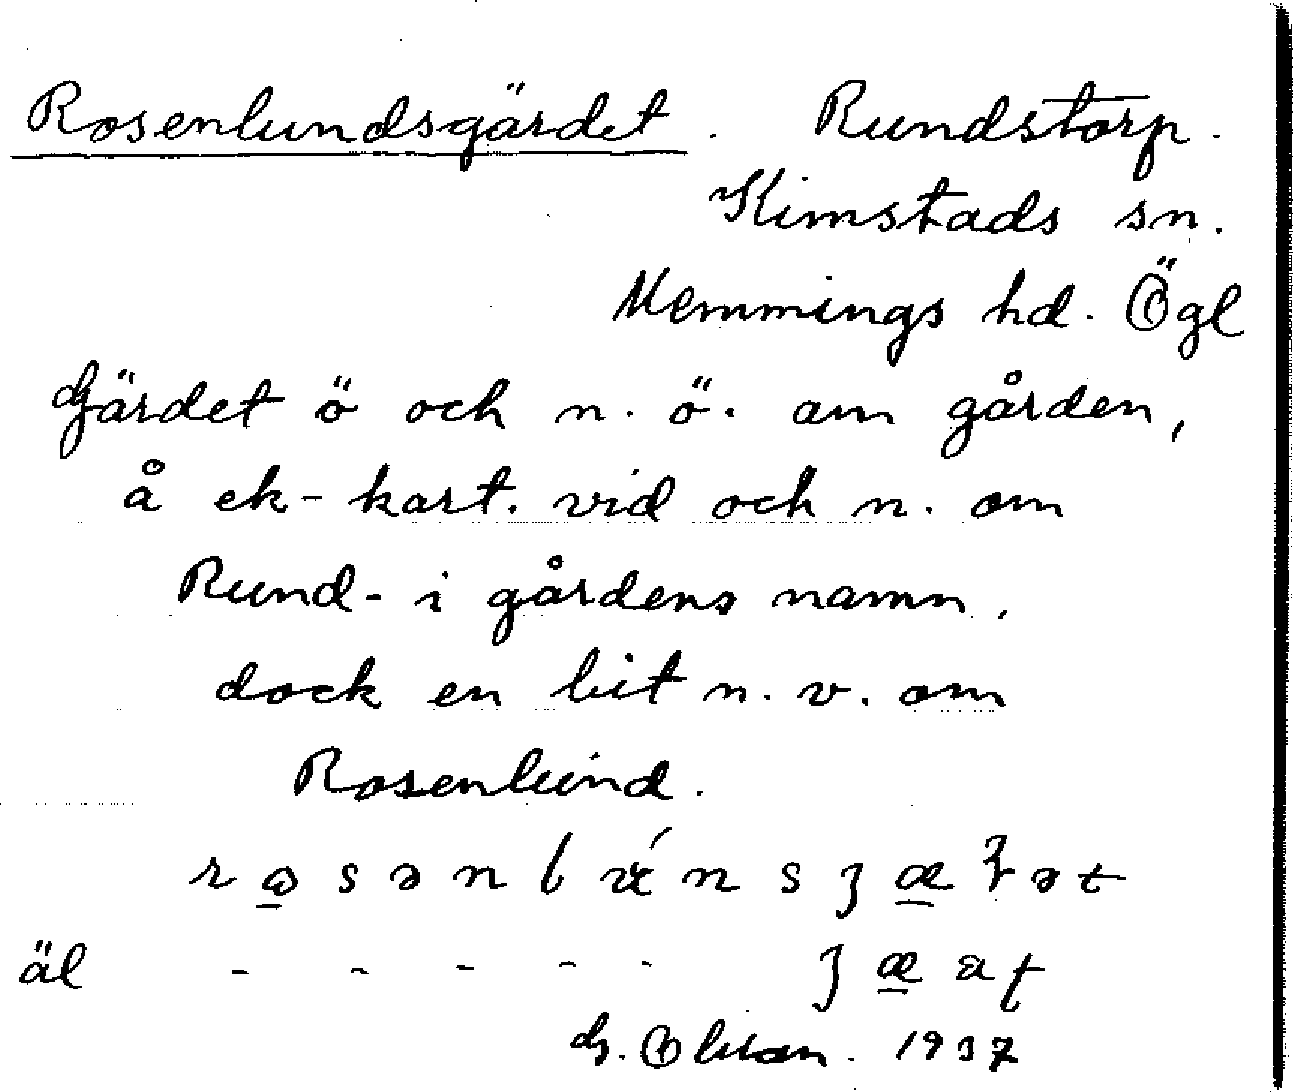 Rosenlundsgärdet. Rundstorp.
Kimstads sn.
Memmings hd. Ögl
Gärdet ö och n. ö. om gården,
å ek-kart. vid och n. om
Rund- i gårdens namn,
dock en bit n. v. om
Rosenlund.
äl - - - - -
G. Olsson. 1937